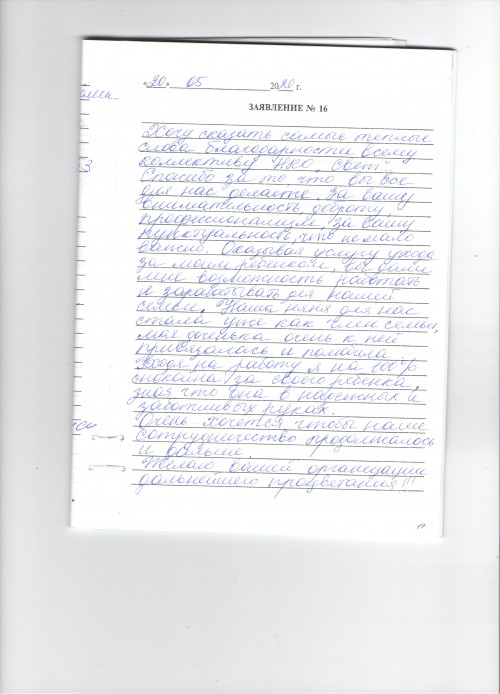 «20» 05 2020 г.
ЗАЯВЛЕНИЕ № 16
Хочу сказать самые теплые
слова благодарности всему
коллективу НКО „Свет"
Спасибо за то, что вы все
для нас делаете. За вашу
внимательность, доброту,
профессионализм, за вашу
пунктуальность, что немало
важно. Оказывая услугу ухода
за моим ребенком, вы дали
мне возможность работать
и зарабатывать для нашей
семьи. Наша няня для нас
стала уже как член семьи,
моя доченька очень к ней
привязалась и полюбила
Уходя на работу я на 100%
спокойна за своего ребенка,
зная что она в надежных и
заботливых руках.
Очень хочется чтобы наше
сотрудничество продолжалось
и дальше.
Желаю вашей организации
дальнейшего процветания!!!